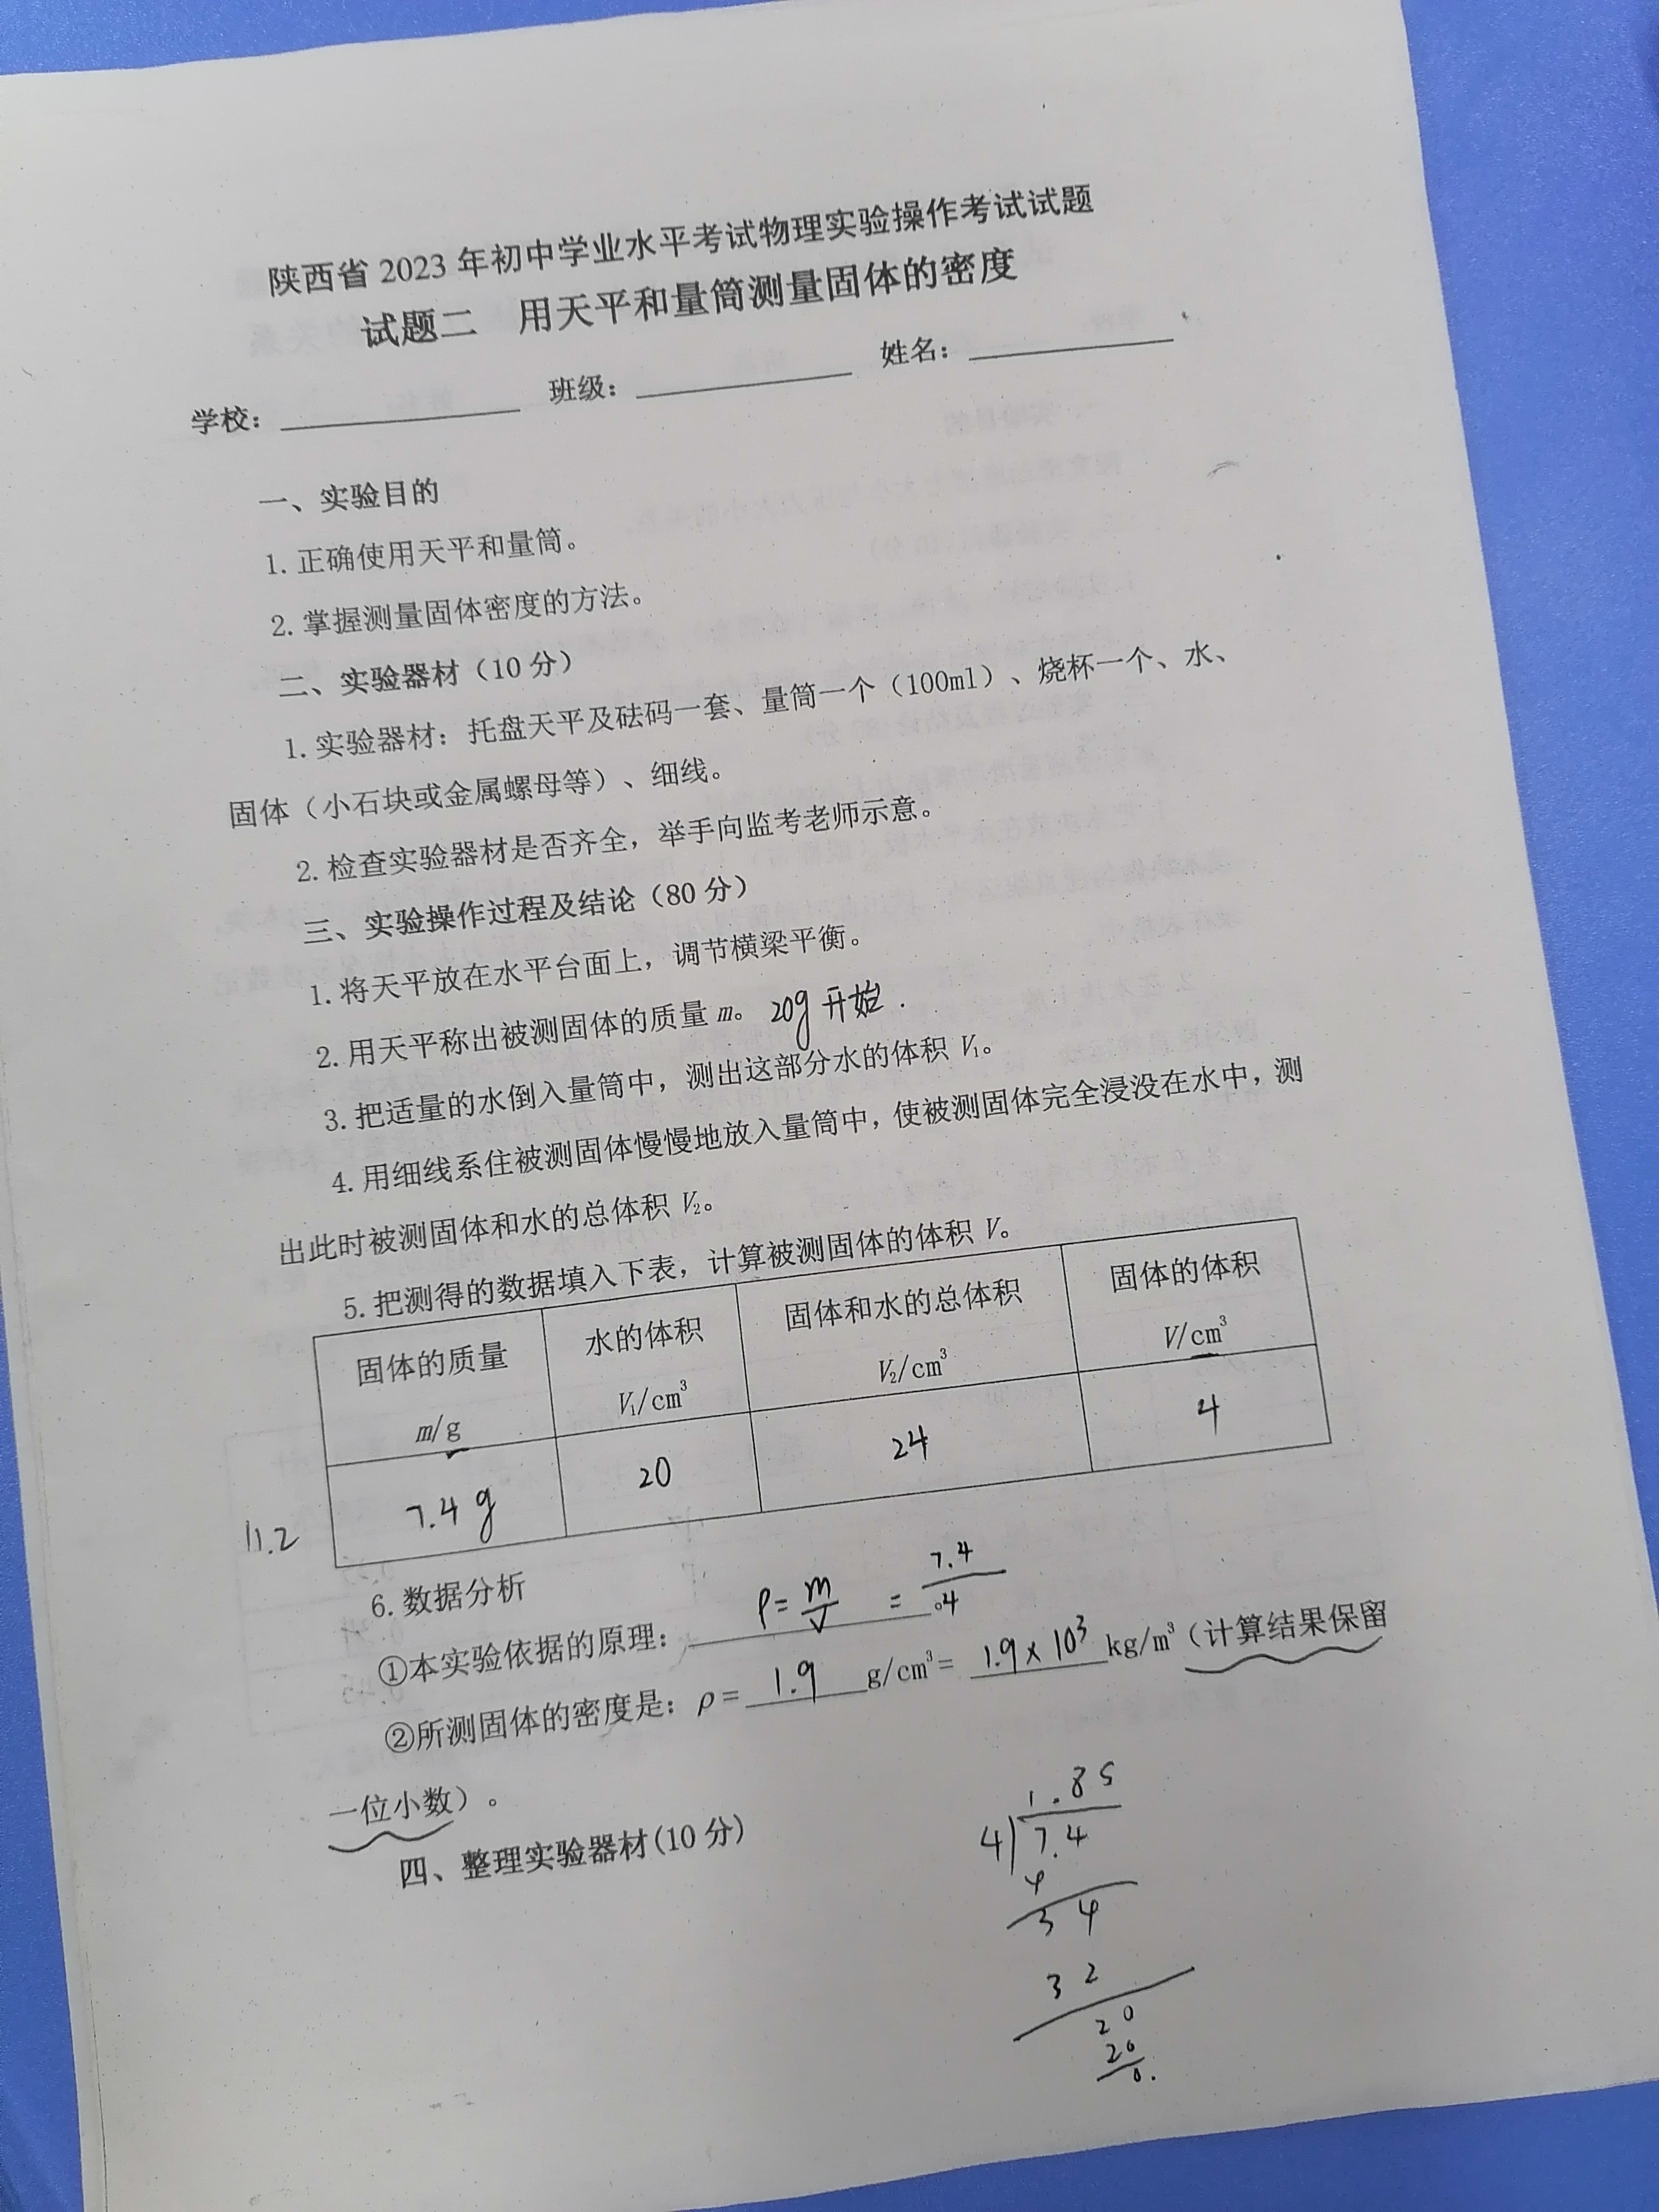 陕西省 2023 年初中学业水平考试物理实验操作考试试题
试题二 用天平和量筒测量固体的密度
学校：＿＿＿＿ 班级：＿＿＿＿ 姓名：＿＿＿＿
一、实验目的
1. 正确使用天平和量筒。
2. 掌握测量固体密度的方法。
二、实验器材（10 分）
1. 实验器材：托盘天平及砝码一套、量筒一个（100ml）、烧杯一个、水、
固体（小石块或金属螺母等）、细线。
2. 检查实验器材是否齐全，举手向监考老师示意。
三、实验操作过程及结论（80 分）
1. 将天平放在水平台面上，调节横梁平衡。
2. 用天平称出被测固体的质量 m。 20g 开始.
3. 把适量的水倒入量筒中，测出这部分水的体积 V₁。
4. 用细线系住被测固体慢慢地放入量筒中，使被测固体完全浸没在水中，测
出此时被测固体和水的总体积 V₂。
5. 把测得的数据填入下表，计算被测固体的体积 V。
固体的质量 m/g 水的体积 V₁/cm³ 固体和水的总体积 V₂/cm³ 固体的体积 V/cm³
11.2 7.4 g 20 24 4
6. 数据分析
①本实验依据的原理： ρ = m/V = 7.4/4
②所测固体的密度是：ρ = 1.9 g/cm³ = 1.9 × 10³ kg/m³（计算结果保留
一位小数）。
四、整理实验器材(10 分)
1.85
4)7.4
4
3 4
3 2
20
20
0.